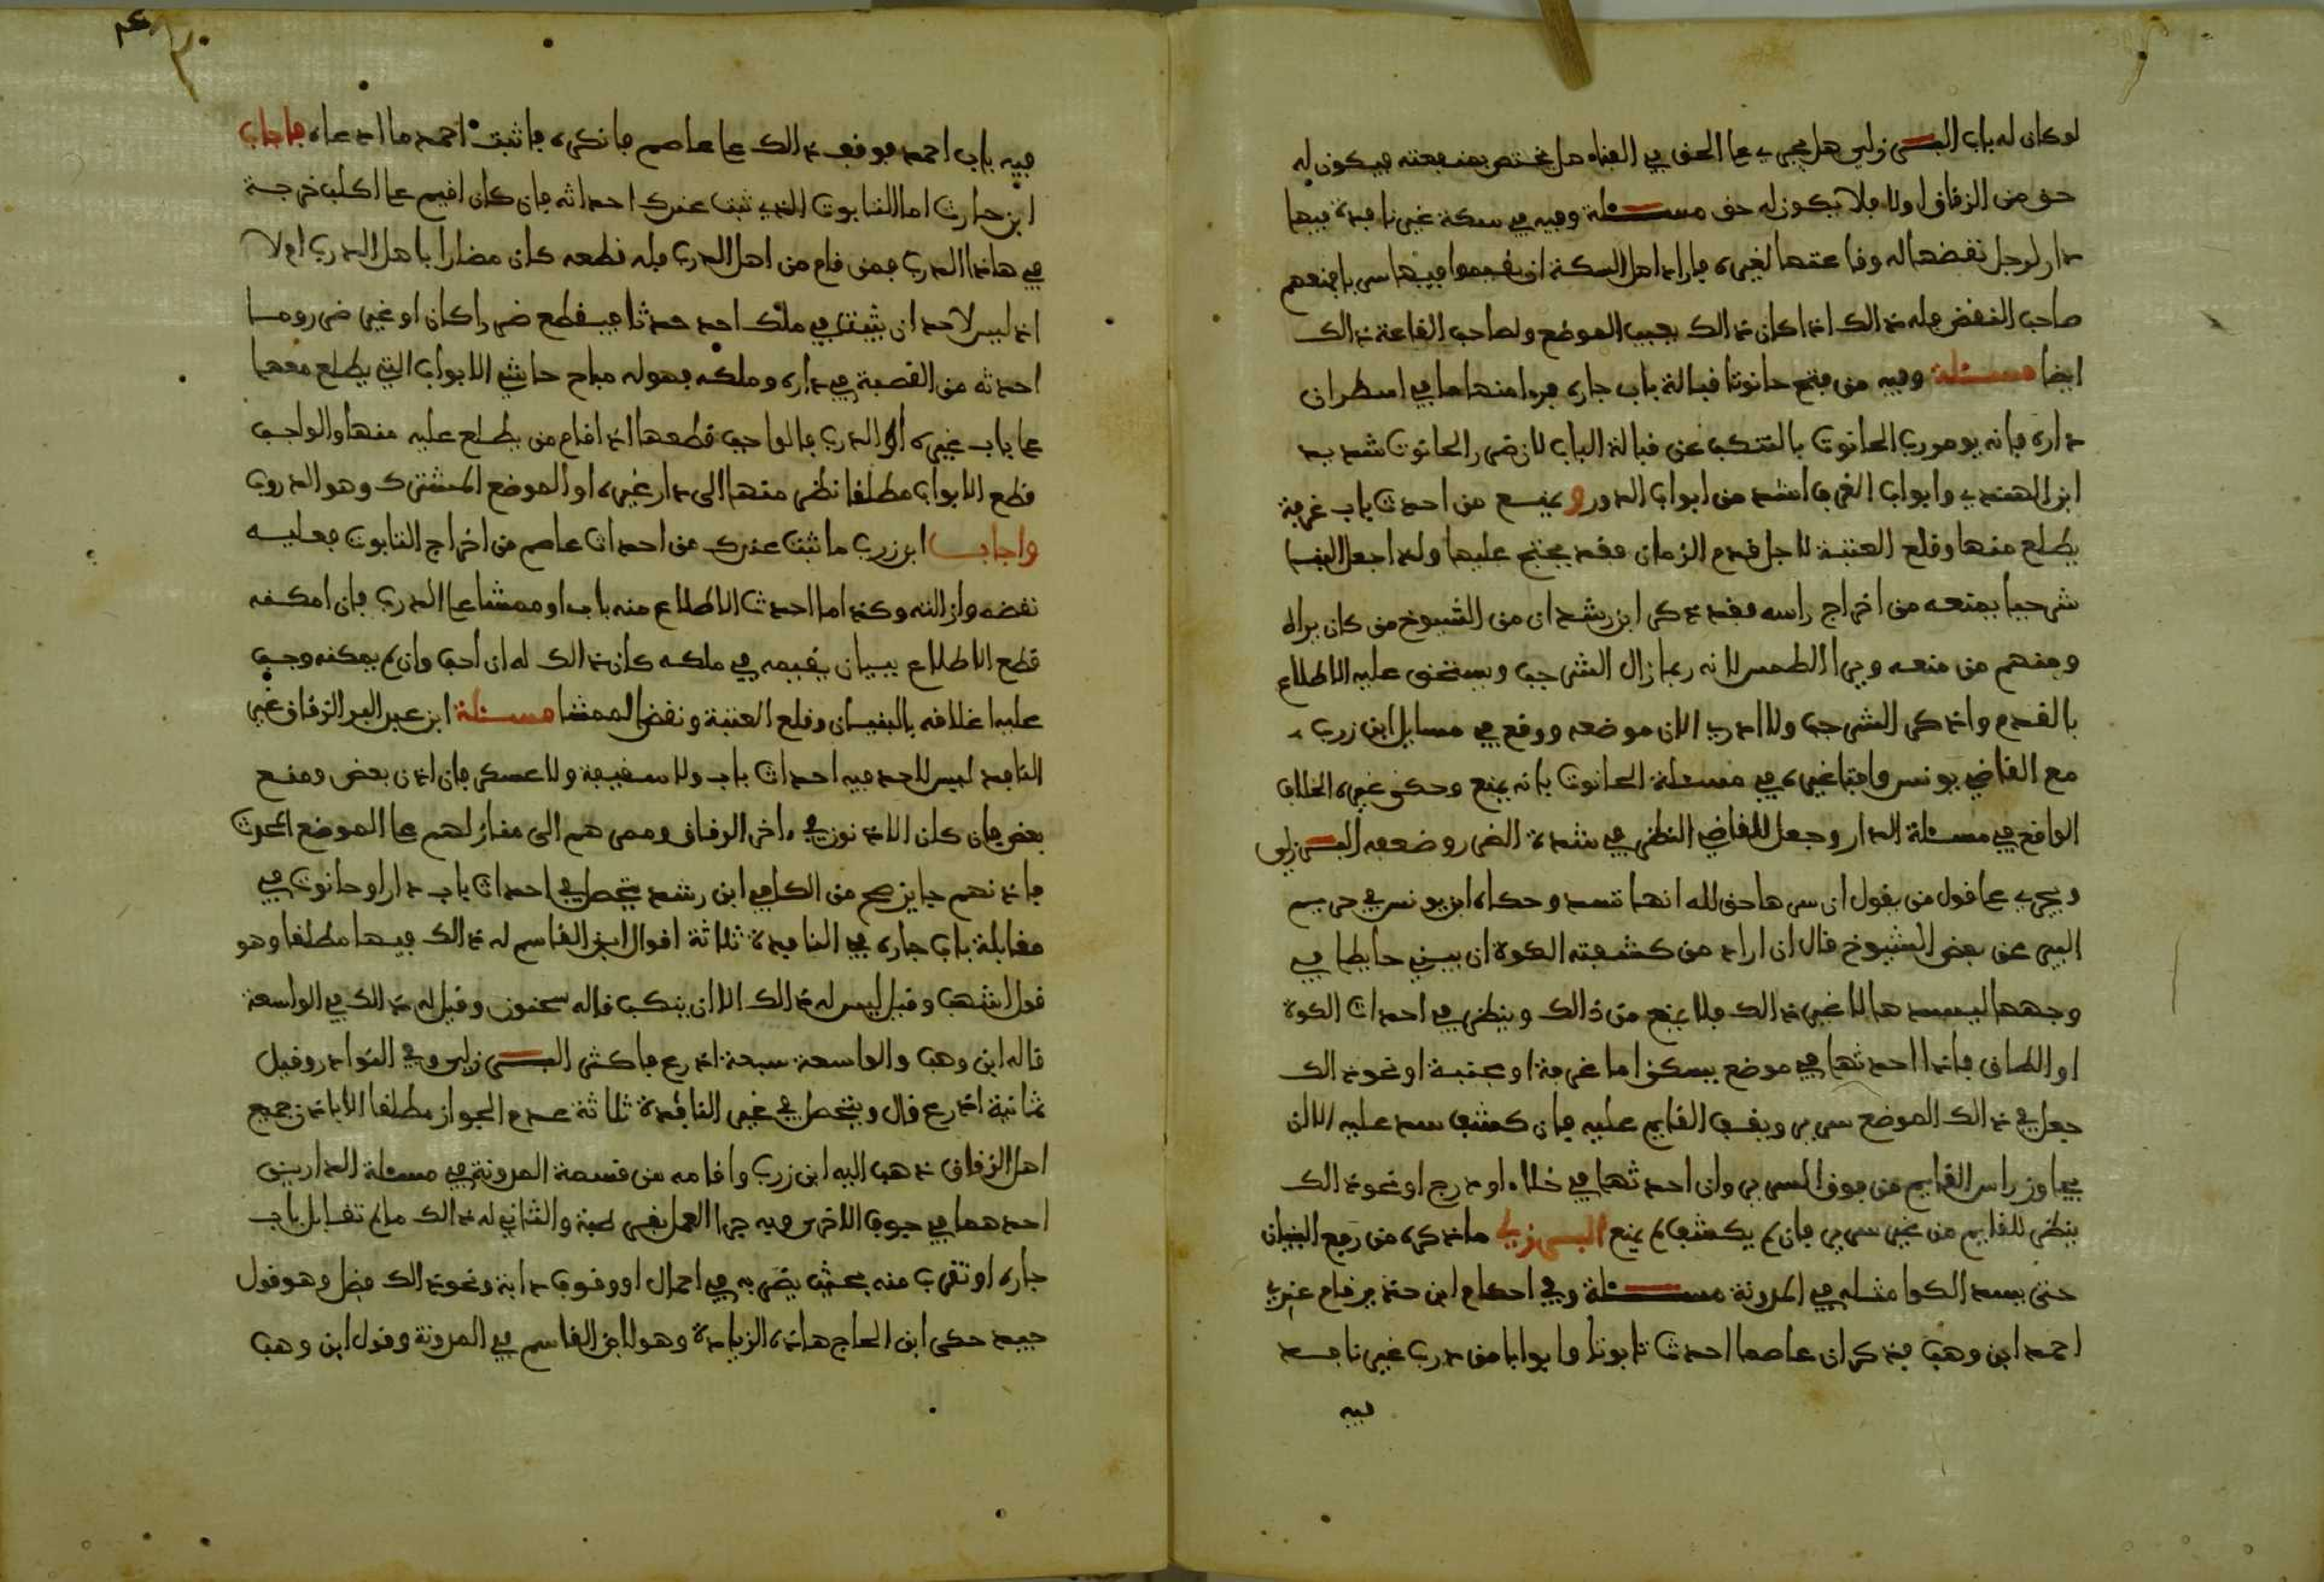 لو كان له باب البرزلي هل يجري على الحق في الفناء هل يختص بمنفعته فيكون له
حق من الزقاق اولا فلا يكون له حق مسئلة وفيه في سكة غير نافذة فيها
دار لرجل نقضها له وقاعتها لغيره فاراد اهل السكة ان يقيموا فيها سربا فمنعهم
صاحب النقض فله ذالك اذا كان ذالك بجيب الموضع ولصاحب القاعة ذالك
ايضا مسئلة وفيه من فتح حانوتا قبالة باب جاره فروا منها ما في اسطوان
داره فانه يومر رب الحانوت بالتنكب عن قبالة الباب لان ضرر الحانوت شديد
ابن الهندي وابواب الغرف اشد من ابواب الدور ويمنع من احدث باب غرفة
يطلع منها وقلع العتبة لاجل قدم الزمان فقد يحتج عليها ولذا جعل
شرجبا يمنعه من اخراج راسه فقد ذكر ابن رشد ان من الشيوخ من كان يراه
ومنهم من منعه ويرا الطمس لانه ربما زال الشرجب ويستحق عليه الاطلاع
بالقدم واذكر الشرجب ولا ادري الان موضعه ووقع في مسايل ابن زرب
مع القاضي يونس وافتا غيره في مسئلة الحانوت بانه يمنع وحكى غيره الخلاف
الواقع في مسئلة الدار وجعل للقاضي النظر في شدة الضرر وضعفه البرزلي
ويجري على قول من يقول ان سرها حق لله انها تسد وحكاه ابن يونس في حريم
البير عن بعض الشيوخ قال ان اراد من كشفته الكوة ان يبني حايطا في
وجهها ليسدها لا غير ذالك فلا يمنع من ذالك وينظر في احداث الكوة
او الطاق فاذا احدثها في موضع يسكن اما غرفة او عتبة او نحو ذالك
جعل في ذالك الموضع سرير ويقف القايم عليه فان كشف سد عليه الا ان
يجاوز راس القايم من فوق السرير وان احدثها في خلاء او درج او نحو ذالك
ينظر للقايم من غير سرير فان لم يكشف لم يمنع البرزلي ما ذكره من رفع البنيان
حتى يسد الكوا مثله في المدونة مسئلة وفي احكام ابن حدير قام عندي
احمد ابن وهب فذكر ان عاصما احدث تابوتا وابوابا من درب غير نافذ
فيه
فيه باب احمد فوقف ذالك على عاصم فانكره فاثبت احمد ما ادعاه فاجاب
ابن حارث اما التابوت الذي ثبت عندك احداثه فان كان اقيم على اكلب خرجة
في هاذا الدرب فمن قام من اهل الدرب فله قطعه كان مضارا باهل الدرب ام لا
اذ ليس لاحد ان يثبت في ملك احد حدثا فيقطع ضررا كان او غير ضرر وما
احدثه من القصبة في داره وملكه فهو له مباح حاشى الابواب التي يطلع معها
على باب غيره او الدرب فالواجب قطعها اذا قام من يطلع عليه منها والواجب
قطع الابواب مطلقا نظر منها الى دار غيره او الموضع المشترك وهو الدروب
واجاب ابن زرب ما ثبت عندك من احداث عاصم من اخراج التابوت فعليه
نقضه وازالته وكذا ما احدث الاطلاع منه باب او ممشا على الدرب فان امكنه
قطع الاطلاع ببنيان يقيمه في ملكه كان ذالك له ان احب وان لم يمكنه وجب
عليه اغلاقه بالبنيان وقلع العتبة ونقض الممشا مسئلة ابن عبد البر الزقاق غير
النافذ ليس لاحد فيه احداث باب ولا سقيفة ولا عسكر فان اذن بعض ومنع
بعض فان كان الاذنون في ءاخر الزقاق وممرهم الى منازلهم على الموضع المحدث
فاذنهم جايز صح من الكافي ابن رشد يتحصل في احداث باب دار او حانوت في
مقابلة باب جاره في النافذة ثلاثة اقوال ابن القاسم له ذالك فيها مطلقا وهو
قول اشهب وقيل ليس له ذالك الا ان ينكب قاله سحنون وقيل له ذالك في الواسعة
قاله ابن وهب والواسعة سبعة اذرع فاكثر البرزلي وفي النوادر وقيل
ثمانية اذرع قال ويتحصل في غير النافذة ثلاثة عدم الجواز مطلقا الا باذن جميع
اهل الزقاق ذهب اليه ابن زرب واقامه من قسمة المدونة في مسئلة الدارين
احدهما في جوف الاخر وبه جرا العمل بقرطبة والثاني له ذالك ما لم تقابل باب
جاره او تقرب منه بحيث يضر به في احمال او وقوف دابة ونحو ذالك فضل وهو قول
جيد حكى ابن الحاج هاذه الزيادة وهو لابن القاسم في المدونة وقول ابن وهب